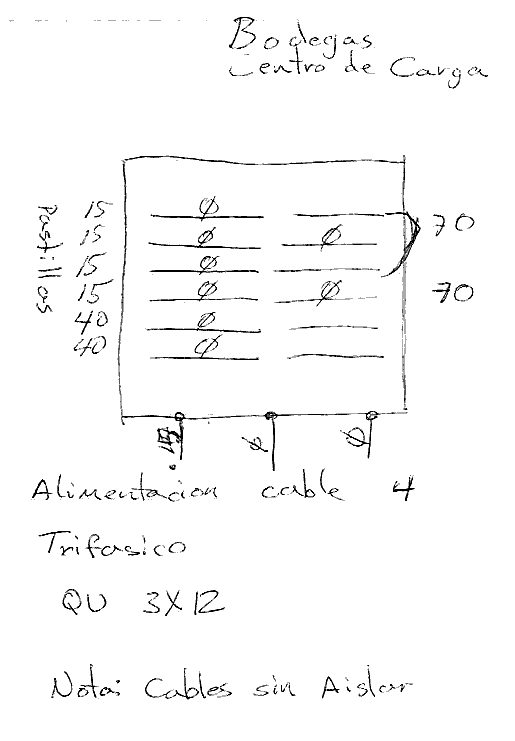 Bodegas
Centro de Carga
Pastillas
15 Ø
15 Ø Ø 70
15 Ø
15 Ø Ø 70
40 Ø
40 Ø
Ø Ø
Alimentacion cable 4
Trifasico
QU 3X12
Nota: Cables sin Aislar